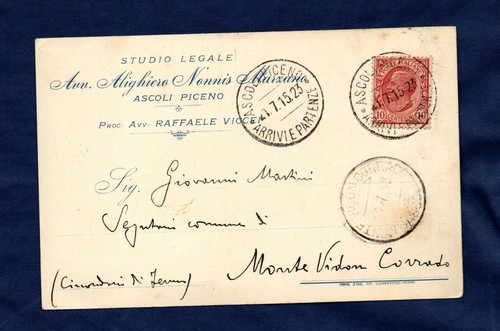 STUDIO LEGALE
Avv. Alighiero Nonnis Marzano
ASCOLI PICENO
PROC: AVV: RAFFAELE VICCE
ASCOLI PICENO
21.7.15.23
ARRIVI E PARTENZE
ASCOLI
7.15.23
ARRIVI
10
Sig. Giovanni Martini
Segretario comune di
Monte Vidon Corrado
(Circondario di Fermo)